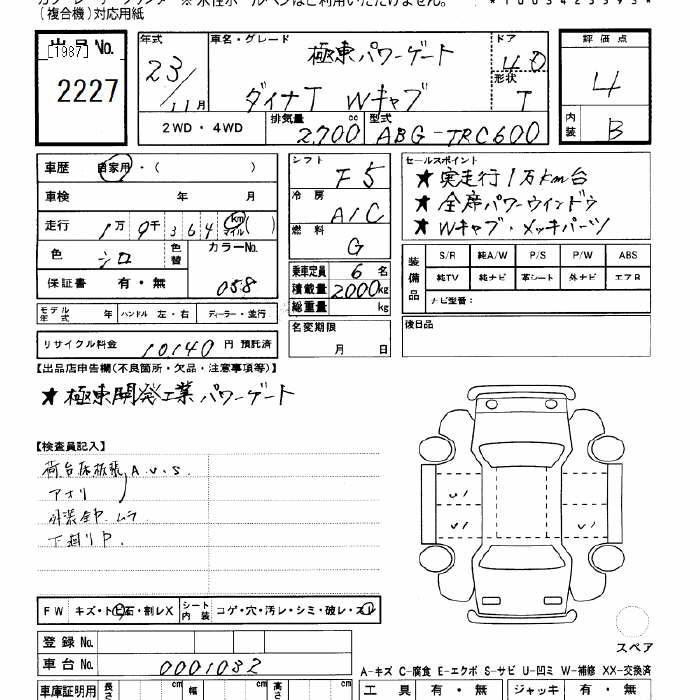 (複合機)対応用紙
出品No.
[1987]
2227
年式
23/11月
車名・グレード
極東パワーゲート
ダイナT Wキャブ
ドア
4D
形状
T
評価点
4
内装
B
2WD・4WD
排気量
2,700 cc
型式
ABG-TRC600
車歴 自家用・( )
車検 年 月
走行 1万9千364 km マイル ( )
色 シロ
色替
カラーNo.
058
保証書 有・無
モデル年式 年 ハンドル 左・右 ディーラー・並行
リサイクル料金 10,140 円 預託済
シフト
F5
冷房
A/C
燃料
G
乗車定員 6 名
積載量 2000kg
総重量 kg
名変期限
月 日
セールスポイント
★実走行1万km台
★全席パワーウインドウ
★Wキャブ・メッキパーツ
装備品
S/R 純A/W P/S P/W ABS
純TV 純ナビ 革シート 外ナビ エアB
ナビ型番:
後日品
【出品店申告欄(不良箇所・欠品・注意事項等)】
★極東開発工業パワーゲート
【検査員記入】
荷台床板張 A.U.S.
アオリ
外装全P.ムラ
下廻りP.
FW キズ・トビ石・割レX
シート内装 コゲ・穴・汚レ・シミ・破レ・スレ
登録No.
車台No. 0001032
車庫証明用 長さ cm 幅 cm 高さ cm
スペア
A-キズ C-腐食 E-エクボ S-サビ U-凹ミ W-補修 XX-交換済
工具 有・無 ジャッキ 有・無